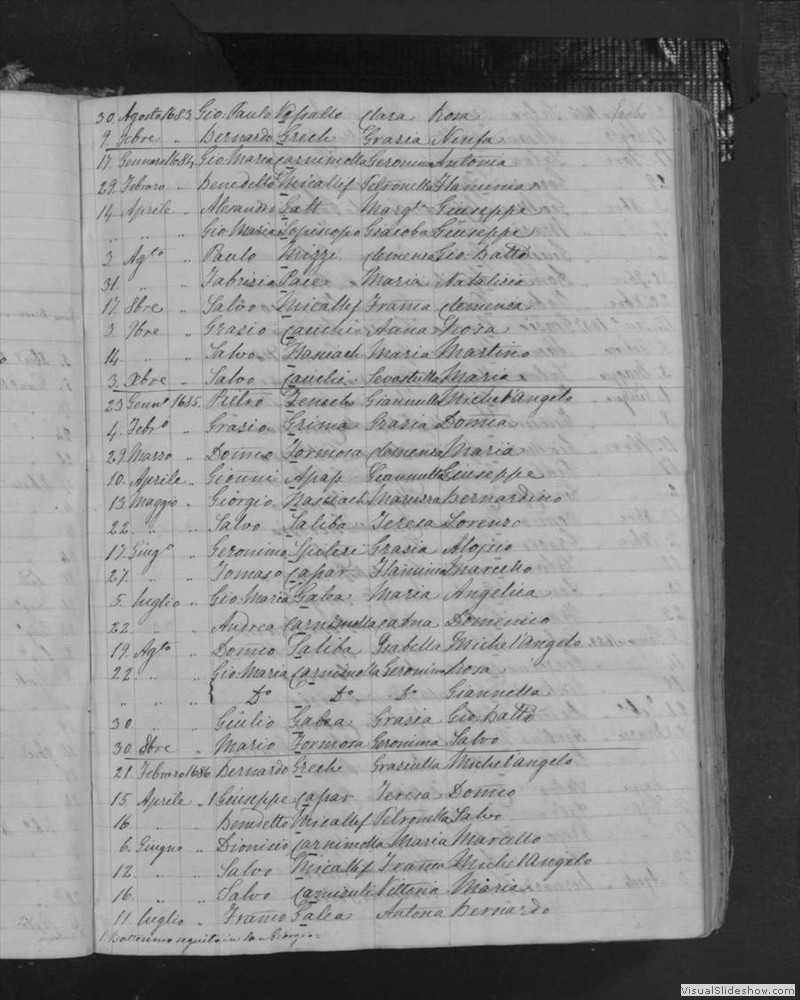 30 Agosto 1683 Gio Paulo Clara Rosa
9 Xbre " Bernardo Grech Grasia Ninfa
17 Gennaro 1684 Gio Maria Carnimolla Geronima Antonia
29 Febraro " Benedetto Micallef Petronella Flaminia
14 Aprile " Alesandri Gatt Margta Giuseppe
" " " Gio Maria Giacoba Giuseppe
3 Agto " Paulo Mizzi Clemensa Gio Batta
31 " " Fabrizio Pace Maria Natalisia
17 8bre " Salvo Micallef Franca Clemensa
3 9bre " Grasio Cauchi Anna
14 " " Salvo Maria Martino
3 Xbre " Salvo Cauchi Sevastilla Maria
23 Gennro 1685 Pietro Giannella Michel'angelo
4 Febro " Grasio Grima Grasia Domca
29 Marzo " Domco Formosa Clemensa Maria
10 Aprile " Gionni Apap Giannella Giuseppe
13 Maggio " Giorgio Bernardino
22 " " Salvo Saliba Teresa Lorenzo
17 Giugo " Geronimo Spiteri Grasia
27 " " Tomaso Capar Flaminia Marcello
5 luglio " Gio Maria Galea Maria Angelica
22 " " Andrea Carnimolla Catna Domenico
19 Agto " Domco Saliba Isabella Michel'Angelo
22 " " Gio Maria Carnimolla Geronima Rosa
" " " { Do Do Do Giannella
30 " " Giulio Galea Grasia Gio Batta
30 8bre " Mario Formosa Geronima Salvo
21 Febraro 1686 Bernardo Grech Grasiulla Michel'angelo
15 Aprile 1 Giuseppe Capar Teresa Domco
16 " " Benedetto Micallef Petronella Salvo
6 Giugno " Dionisio Carnimolla Maria Marcello
12 " " Salvo Micallef Franca Michel'Angelo
16 " " Salvo Camisuli Vittoria Maria
11 luglio " Franco Galea Antona Bernardo
1 Battesimo
VisualSlideshow.com